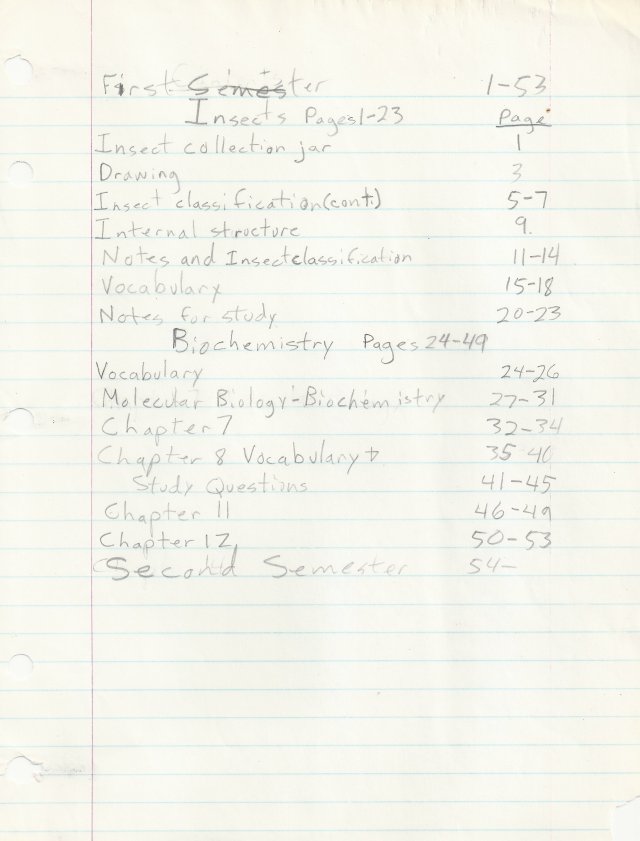 First Semester 1-53
Insects Pages 1-23 Page
Insect collection jar 1
Drawing 3
Insect classification (cont.) 5-7
Internal structure 9.
Notes and Insect classification 11-14
Vocabulary 15-18
Notes for study 20-23
Biochemistry Pages 24-49
Vocabulary 24-26
Molecular Biology-Biochemistry 27-31
Chapter 7 32-34
Chapter 8 Vocabulary + 35-40
Study Questions 41-45
Chapter 11 46-49
Chapter 12 50-53
Second Semester 54-